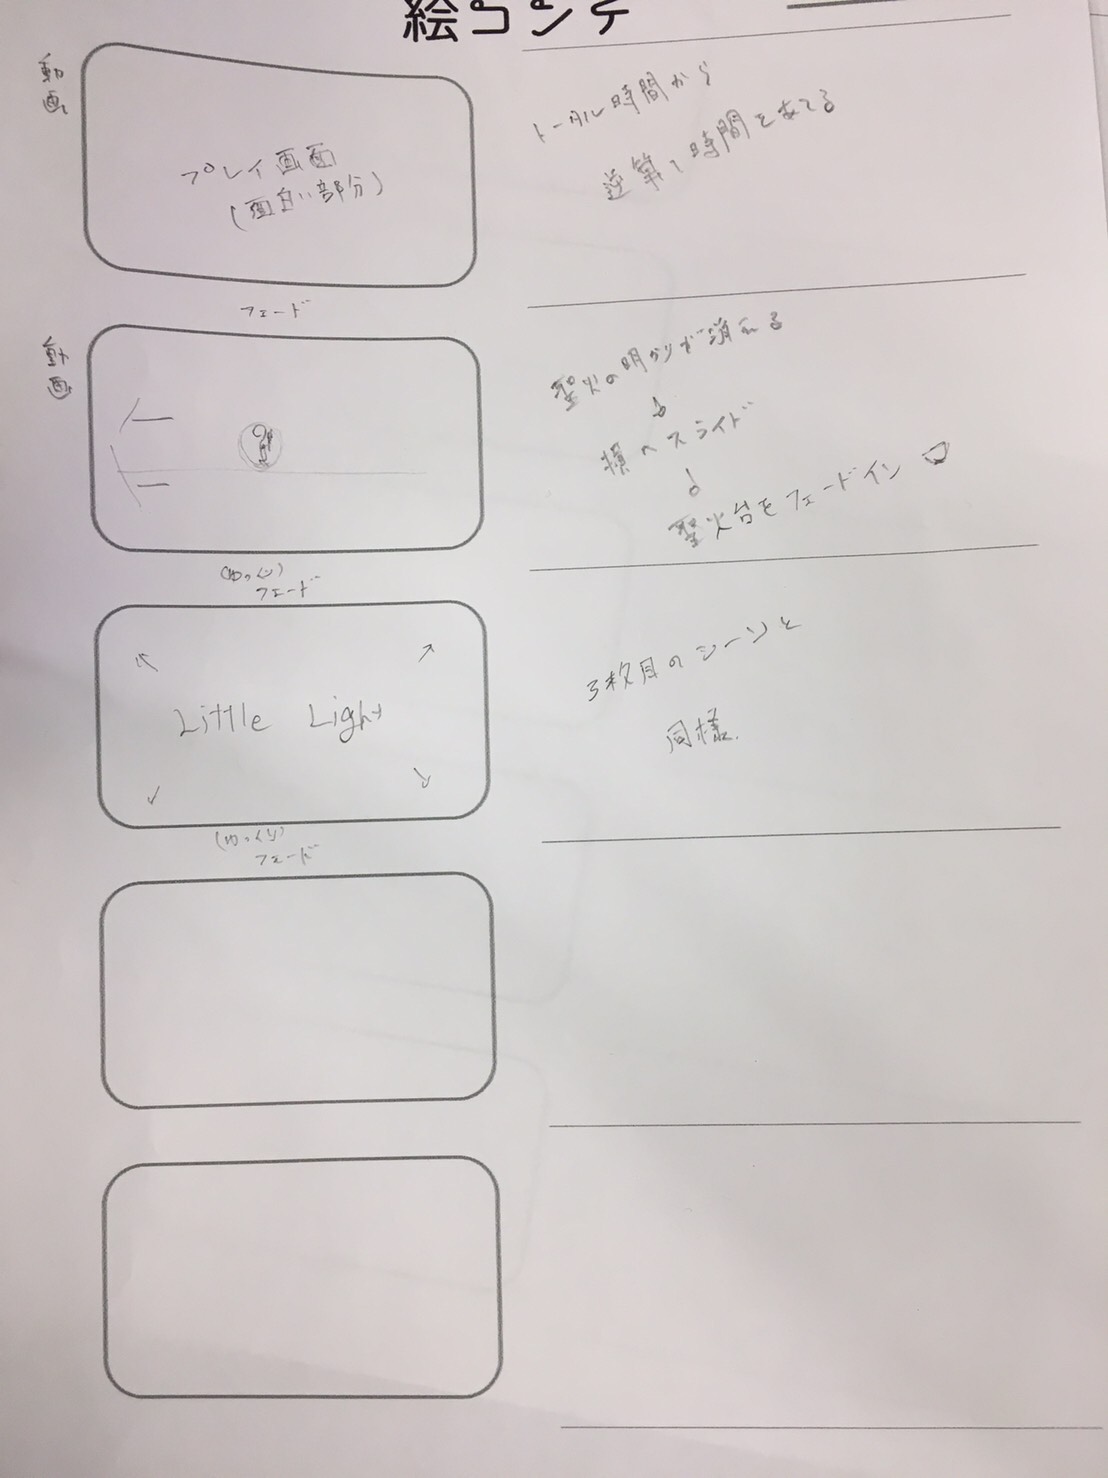 絵コンテ
動画
プレイ画面
(面白い部分)
トータル時間から
逆算して時間をあてる
フェード
動画
聖火の明かりが消れる
↓
横へスライド
↓
聖火台をフェードイン
(ゆっくり)
フェード
Little Light
3枚目のシーンと
同様.
(ゆっくり)
フェード